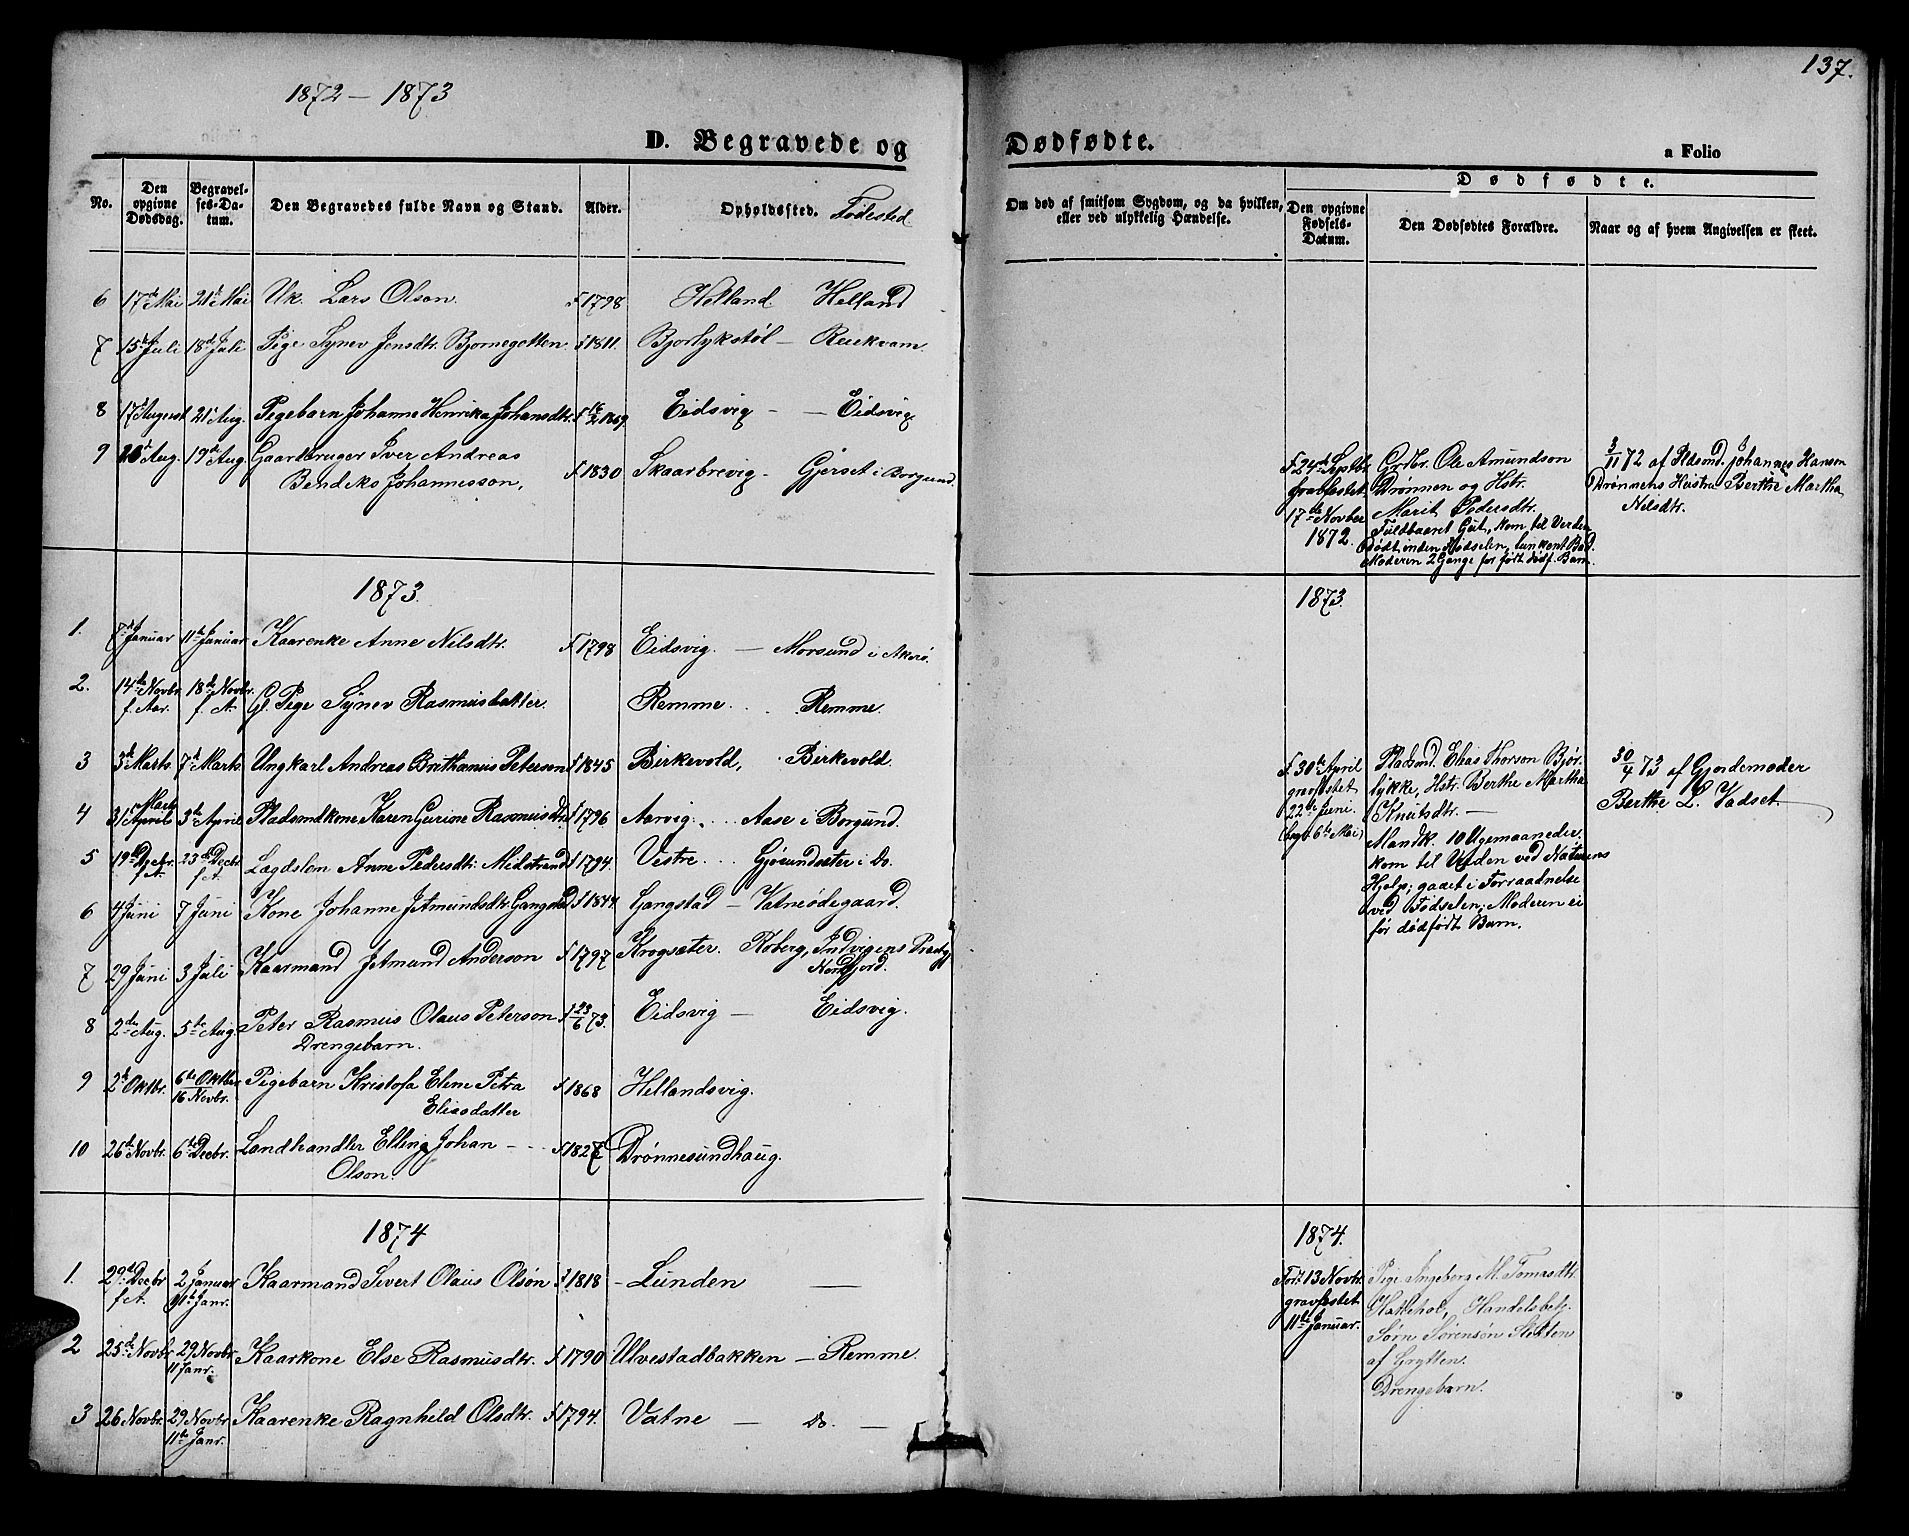 1872 – 1873
D. Begravede og
No.
Den opgivne Dødsdag.
Begravelses-Datum.
Den Begravedes fulde Navn og Stand.
Alder.
Opholdssted. Fødested
6 17de Mai 21de Mai Uk. Lars Olson. F 1798 Helland Helland
7 15de Juli 18de Juli Pige Synev Jensdtr. Bjornegotten. F 1811. Bjorlykstøl – Reukvam.
8 17d August 21de Aug. Pigebarn Johanne Henrika Johansdtr. F 16/2 1869. Eidsvig – – Eidsvig
9 Aug. 19de Aug. Gaardbruger Iver Andreas
Bendeks Johannesson, F 1830 Skaarbrevig – Gjerset i Borgund.
1873.
1. 7de Januar 11te Januar Kaarenke Anne Nilsdtr. F 1798 Eidsvig. – Morsund i Akerø.
2. 14de Novbr. 18de Novbr. Gl. Pige Synev Rasmusdatter. Remme. . . Remme.
f. Aar. f. A.
3 3de Marts 7de Marts Ungkarl Andreas Brithanius Peterson F 1845 Birkevold, . Birkevold.
Marts
4 31 April 3de April Pladsmdkone Karen Gurine Rasmusdtr. F 1796 Aarvig . . . Aase i Borgund.
5 19de Decbr. 23de Decbr. Lægdslen Anne Pedersdtr. Midstrand F 1794. Vestre . . . Gjøsundsæter i Do.
f. A. f. A.
6 4 Juni 7 Juni Kone Johanne Jetmundsdtr. Gangstad F 1844. Gangstad – Vatneødegaard.
7 29 Juni 3 Juli Kaarmand Jetmund Anderson F 1797 Krogsæter. Roberg, Indvigens Præstg
Nordfjord.
8 2den Aug. 5te Aug. Peter Rasmus Olaus Peterson F 23/6 73. Eidsvig – Eidsvig.
Drengebarn.
9 2de Oktbr. 6te Oktber Pigebarn Kristofa Eline Petra F 1868 Hellandsvig.
16 Novbr. Eliasdatter
10 26de Novbr. 6te Decbr. Landhandler Elling Johan – – F 1827 Drønnesundhaug.
Olson.
1874
1. 29de Decbr 2 Januar Kaarmand Sivert Olaus Olsøn F 1818 – Lunden –
f A. 11te Janr.
2 25de Novbr 29 Novbr. Kaarkone Else Rasmusdtr. F 1790 Ulvestadbakken – Remme.
11 Janr.
3 26 Novbr. 29 Novbr. Kaarenke Ragnhild Olsdtr. F 1794. Vatne – Do. –
11te Janr.
137.
Dødfødte.
a Folio
Om død af smitsom Sygdom, og da hvilken, eller ved ulykkelig Hændelse.
Dødfødte.
Den opgivne Fødsels-Datum.
Den Dødfødtes Forældre.
Naar og af hvem Angivelsen er skeet.
F. 24de Septbr. Grdbr. Ole Amundson 3/11 72 af Pldsmd. Johannes Hansen
gravfæstet Drønnen og Hstr. Drønnens Hustru Berthe Martha
17de Novber Marit Pedersdtr. Nilsdtr.
1872. Fuldbaaret Gut, kom til Verden
Dødt inden Fødselen, lunkent Bad.
Moderen 2 Gange før født dødf. Barn.
1873.
F 30te April Pladsmd. Elias Thorson Bjør- 30/4 73 af Gjordemoder
gravfæstet lykke, Hstr. Berthe Martha Berthe L. Vadset
22de Juni Knutsdtr. –
(begr. 6te Mai) Mandk. 10 Ugemaaneder
kom til Verden ved Naturens
Hjelp; gaaet i Forraadnelse
ved Fødselen; Moderen ei
før dødfødt Barn.
1874.
Fød. 13 Novbr. Pige Ingeberg M. Tomasdtr.
gravfæstet Hattehol, Handelsbetj.
11te Januar. Sørn Sørensøn
af Grytten.
Drengebarn.